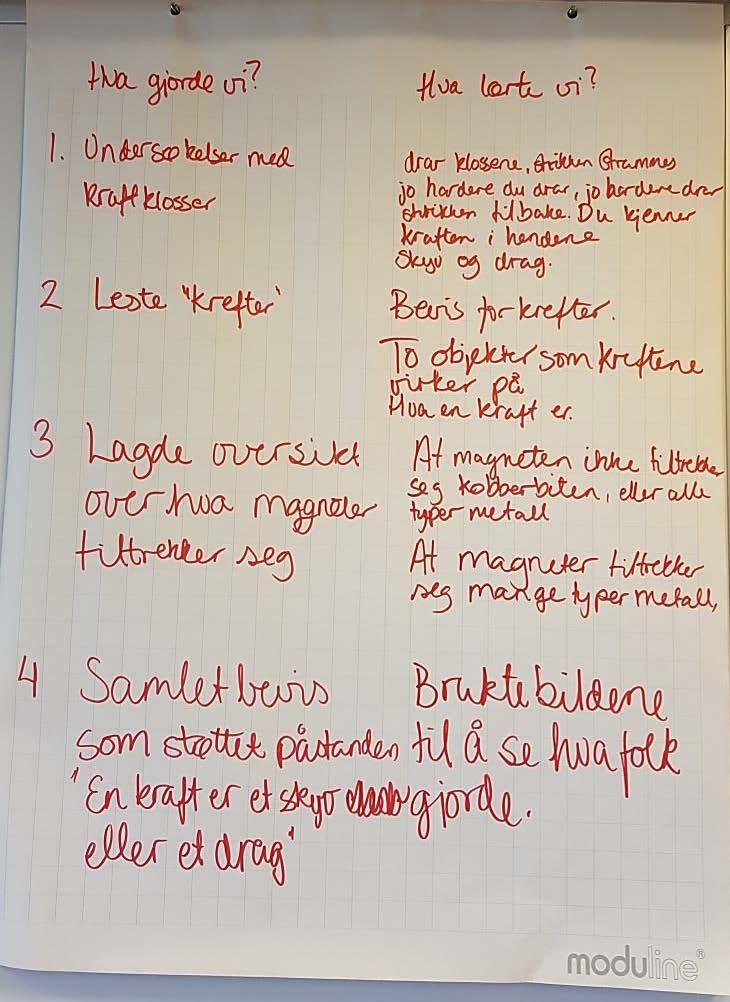 Hva gjorde vi?
Hva lærte vi?
1. Undersøkelser med
kraftklosser
drar klossene, strikken strammes
jo hardere du drar, jo hardere drar
strikken tilbake. Du kjenner
kraften i hendene
Skyv og drag.
2 Leste "krefter"
Bevis for krefter.
To objekter som kreftene
virker på
Hva en kraft er.
3 Lagde oversikt
over hva magneter
tiltrekker seg
At magneten ikke tiltrekker
seg kobberbiten, eller alle
typer metall
At magneter tiltrekker
seg mange typer metall,
4 Samlet bevis
som støttet påstanden
"En kraft er et skyv
eller et drag"
Brukte bildene
til å se hva folk
gjorde.
moduline®